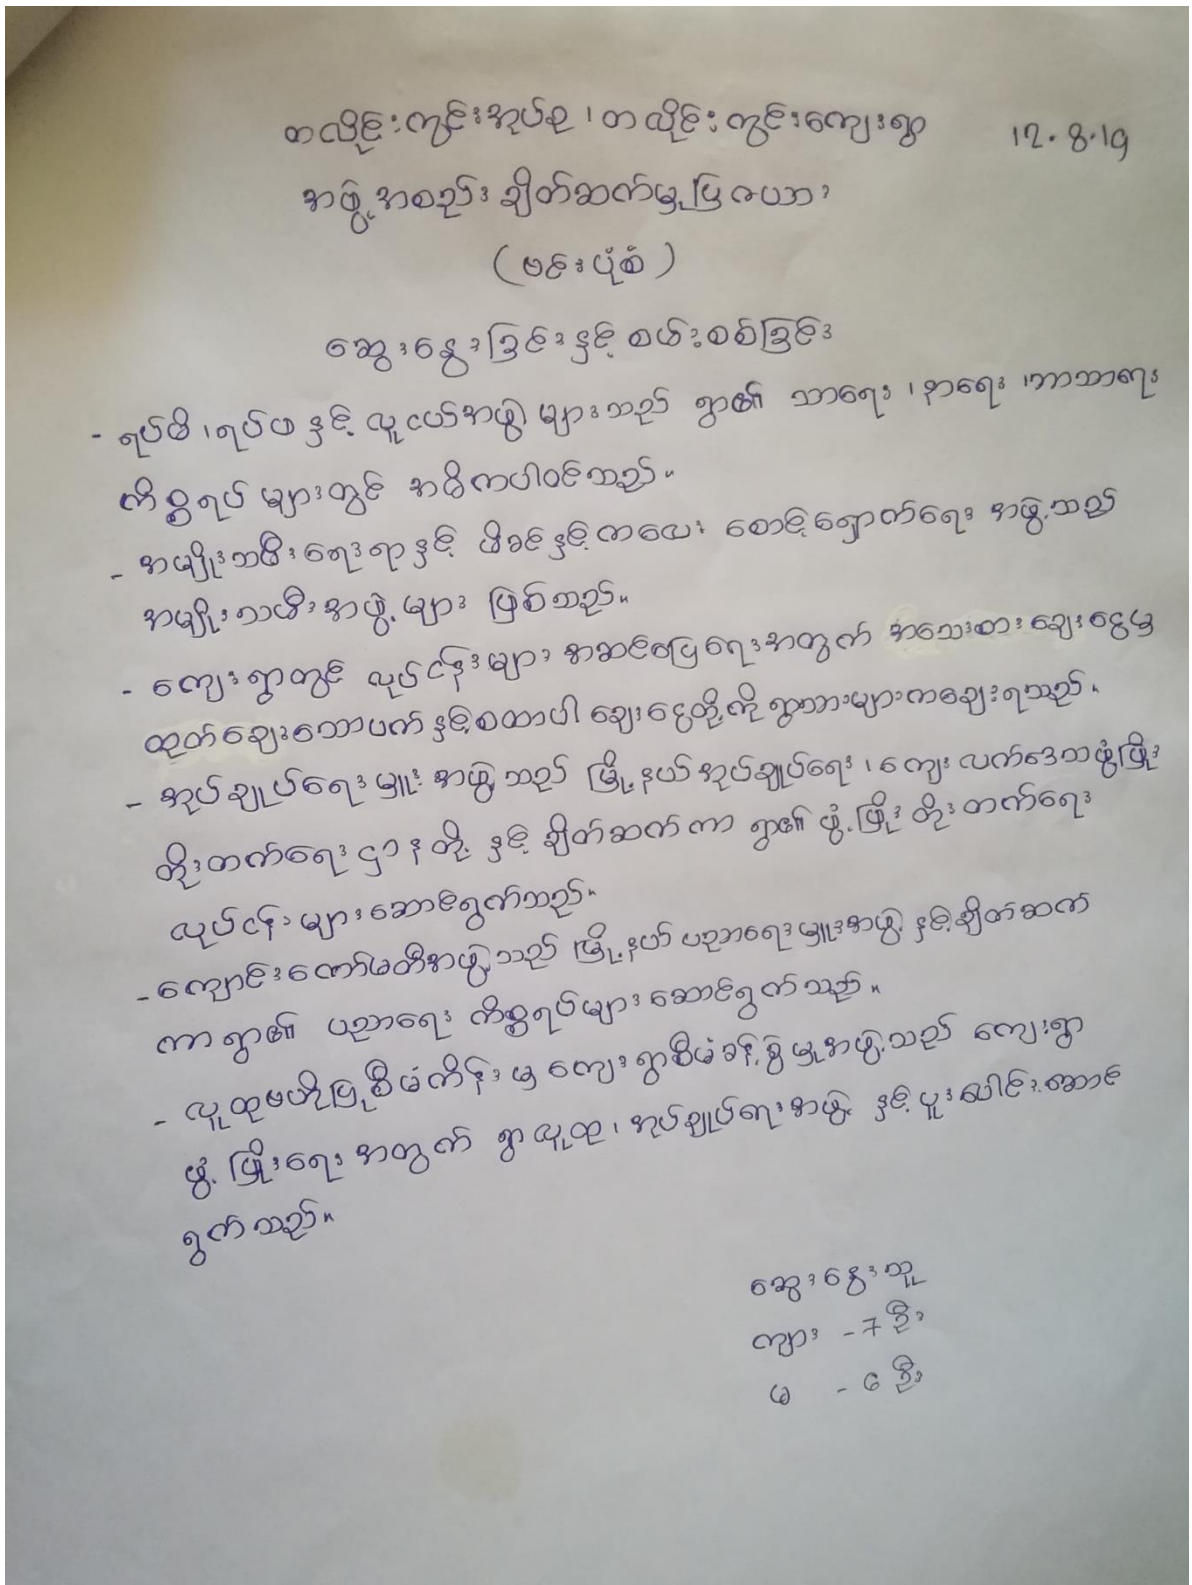 တလိုင်းကွင်းအုပ်စု၊ တလိုင်းကွင်းကျေးရွာ 12.8.19
အဖွဲ့အစည်း ချိတ်ဆက်မှုပြဇယား
(ဗင်းပုံစံ)
ဆွေးနွေးခြင်းနှင့် စမ်းစစ်ခြင်း
- ရပ်မိ၊ ရပ်ဖ နှင့် လူငယ်အဖွဲ့ များသည် ရွာ၏ သာရေး၊ နာရေး၊ ဘာသာရေး
ကိစ္စရပ် များတွင် အဓိကပါဝင်သည်။
- အမျိုးသမီးရေးရာနှင့် မိခင်နှင့်ကလေး စောင့်ရှောက်ရေး အဖွဲ့သည်
အမျိုးသမီးအဖွဲ့များ ဖြစ်သည်။
- ကျေးရွာတွင် လုပ်ငန်းများ အဆင်ပြေရေးအတွက် အသေးစားချေးငွေမှ
ထုတ်ချေးသောပက် နှင့်စထာပါ ချေးငွေတို့ကို ရွာသားများကချေးရသည်။
- အုပ်ချုပ်ရေးမှူး အဖွဲ့သည် မြို့နယ်အုပ်ချုပ်ရေး၊ ကျေးလက်ဒေသဖွံ့ဖြိုး
တိုးတက်ရေးဌာနတို့ နှင့် ချိတ်ဆက်ကာ ရွာ၏ ဖွံ့ဖြိုး တိုးတက်ရေး
လုပ်ငန်းများဆောင်ရွက်သည်။
- ကျောင်းကော်မတီအဖွဲ့သည် မြို့နယ် ပညာရေးမှူးအဖွဲ့ နှင့်ချိတ်ဆက်
ကာ ရွာ၏ ပညာရေး ကိစ္စရပ်များဆောင်ရွက်သည်။
- လူထုဗဟိုပြုစီမံကိန်းမှ ကျေးရွာစီမံခန့်ခွဲမှုအဖွဲ့သည် ကျေးရွာ
ဖွံ့ဖြိုးရေးအတွက် ရွာလူထု၊ အုပ်ချုပ်ရေးအဖွဲ့ နှင့် ပူးပေါင်းဆောင်
ရွက်သည်။
ဆွေးနွေးသူ
ကျား - 7 ဦး
မ - 6 ဦး